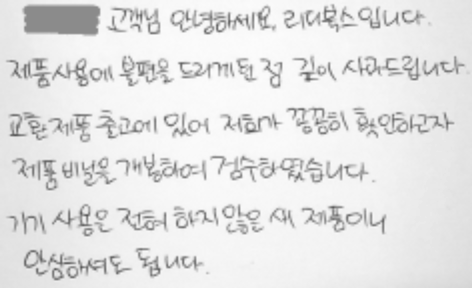 고객님 안녕하세요, 리디북스입니다.
제품사용에 불편을 드리게된 점 깊이 사과드립니다.
교환 제품 출고에 있어 저희가 꼼꼼히 확인하고자
제품 비닐을 개봉하여 검수하였습니다.
기기 사용은 전혀 하지않은 새 제품이니
안심하셔도 됩니다.